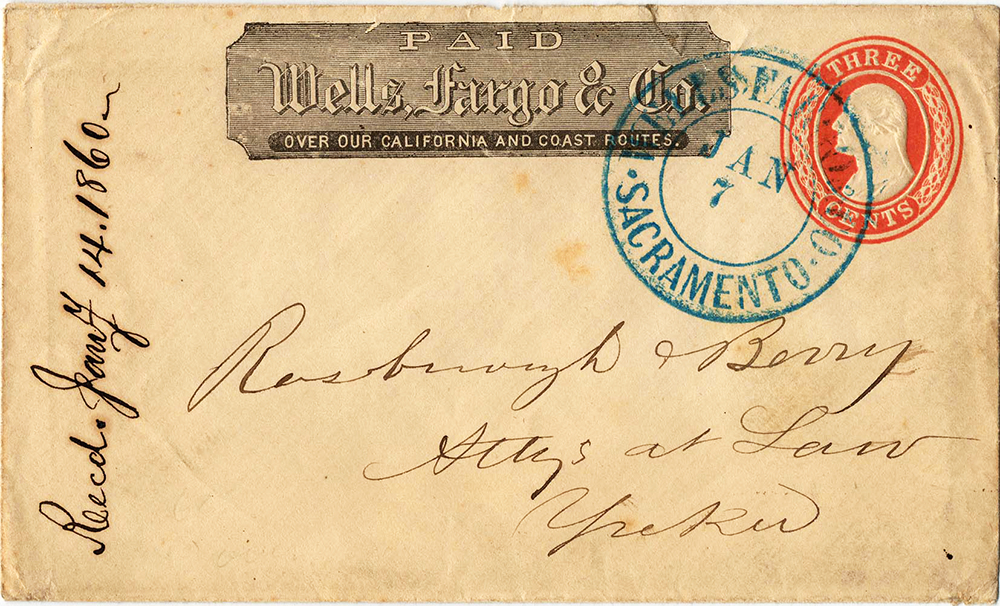 PAID
Wells, Fargo & Co.
OVER OUR CALIFORNIA AND COAST ROUTES.
THREE
CENTS
WELLS, FARGO & CO.
JAN
7
SACRAMENTO
Rosborough & Berry
Attys at Law
Yreka
Recd. Jany 14. 1860